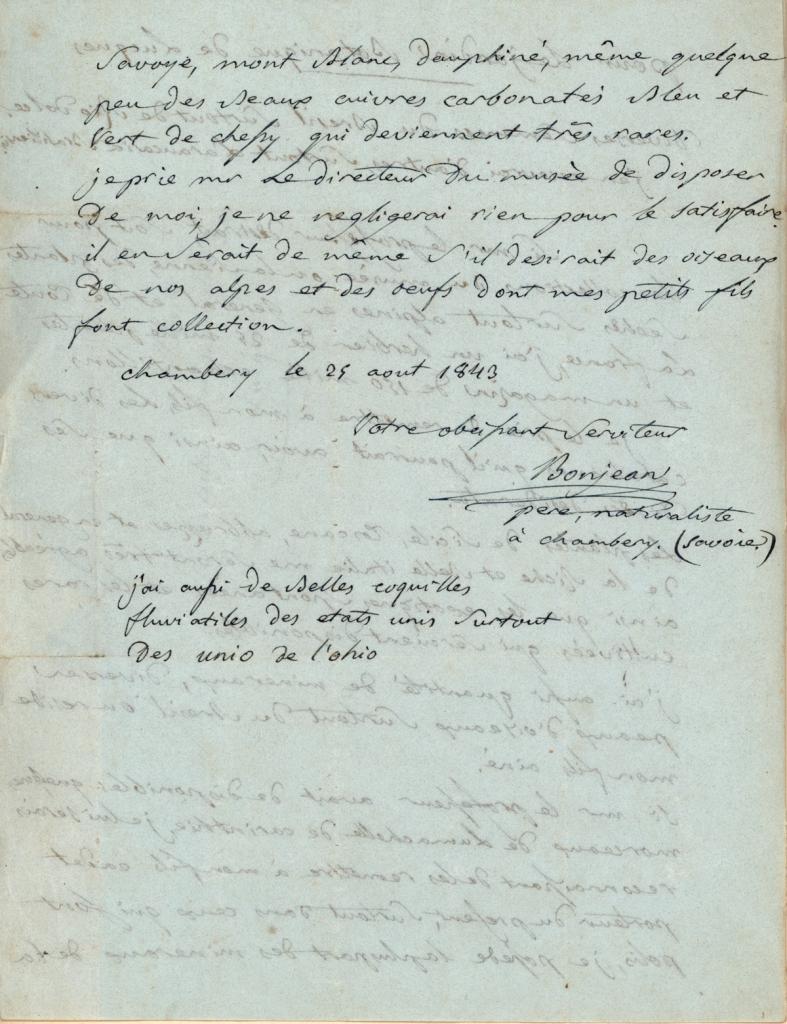 Savoye, mont Blanc, dauphiné, même quelque
peu des Beaux cuivres carbonatés Bleu et
vert de chessy qui deviennent très rares.
je prie mr Le directeur Du musée de disposer
De moi, je ne negligerai rien pour le satisfaire,
il en serait de même s'il desirait des oiseaux
De nos alpes et des oeufs dont mes petits fils
font collection.
chambery le 25 aout 1843
Votre obeissant Serviteur
Bonjean
pere, naturaliste
à chambery. (Savoie.)
j'ai aussi de Belles coquilles
fluviatiles des etats unis surtout
Des unio de l'ohio